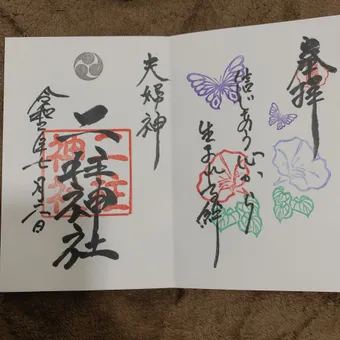 奉拝
信じあう心から
生まれる絆
夫婦神
二柱神社
二柱
神社
令和 年七月 日